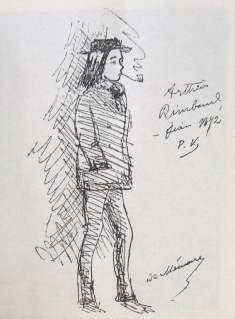 Arthur
Rimbaud
- Juin 1872
P. V.
De Mémoire